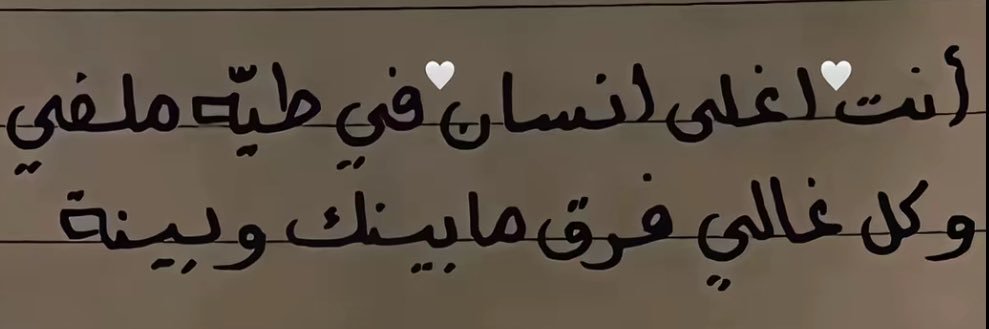 أنت اغلى انسان في طيّه ملفي
وكل غالي فرق مابينك وبينة